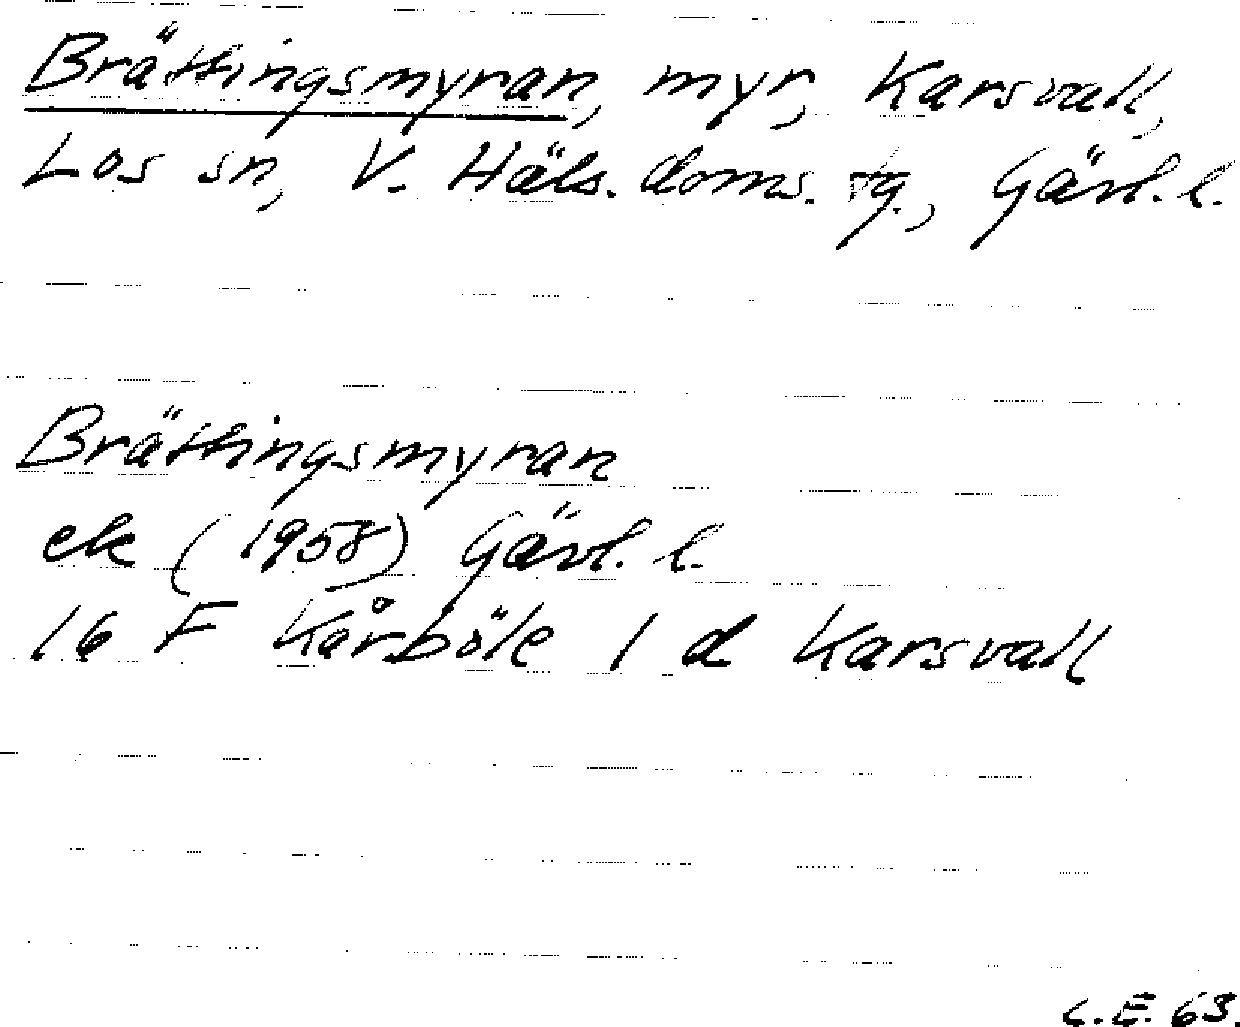 Brättingsmyran, myr, Karsvall,
Los sn, V. Häls. doms. tg., Gävl. l.
Brättingsmyran
ek (1958) Gävl. l.
16 F Kårböle 1 d Karsvall
C.E. 63.